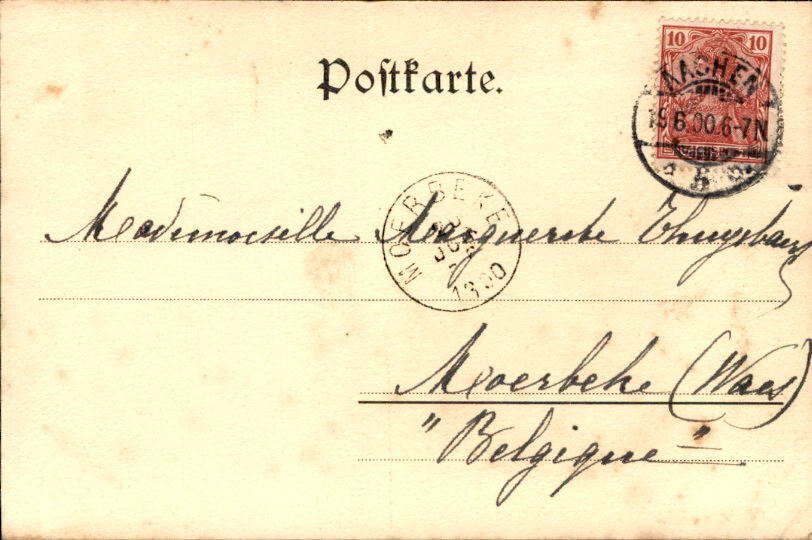 10 10
AACHEN
19.6.00.6-7N
Postkarte.
MOERBEKE
1900
Mademoiselle Marguerite Thuysbaert
Moerbeke (Waes)
"Belgique"